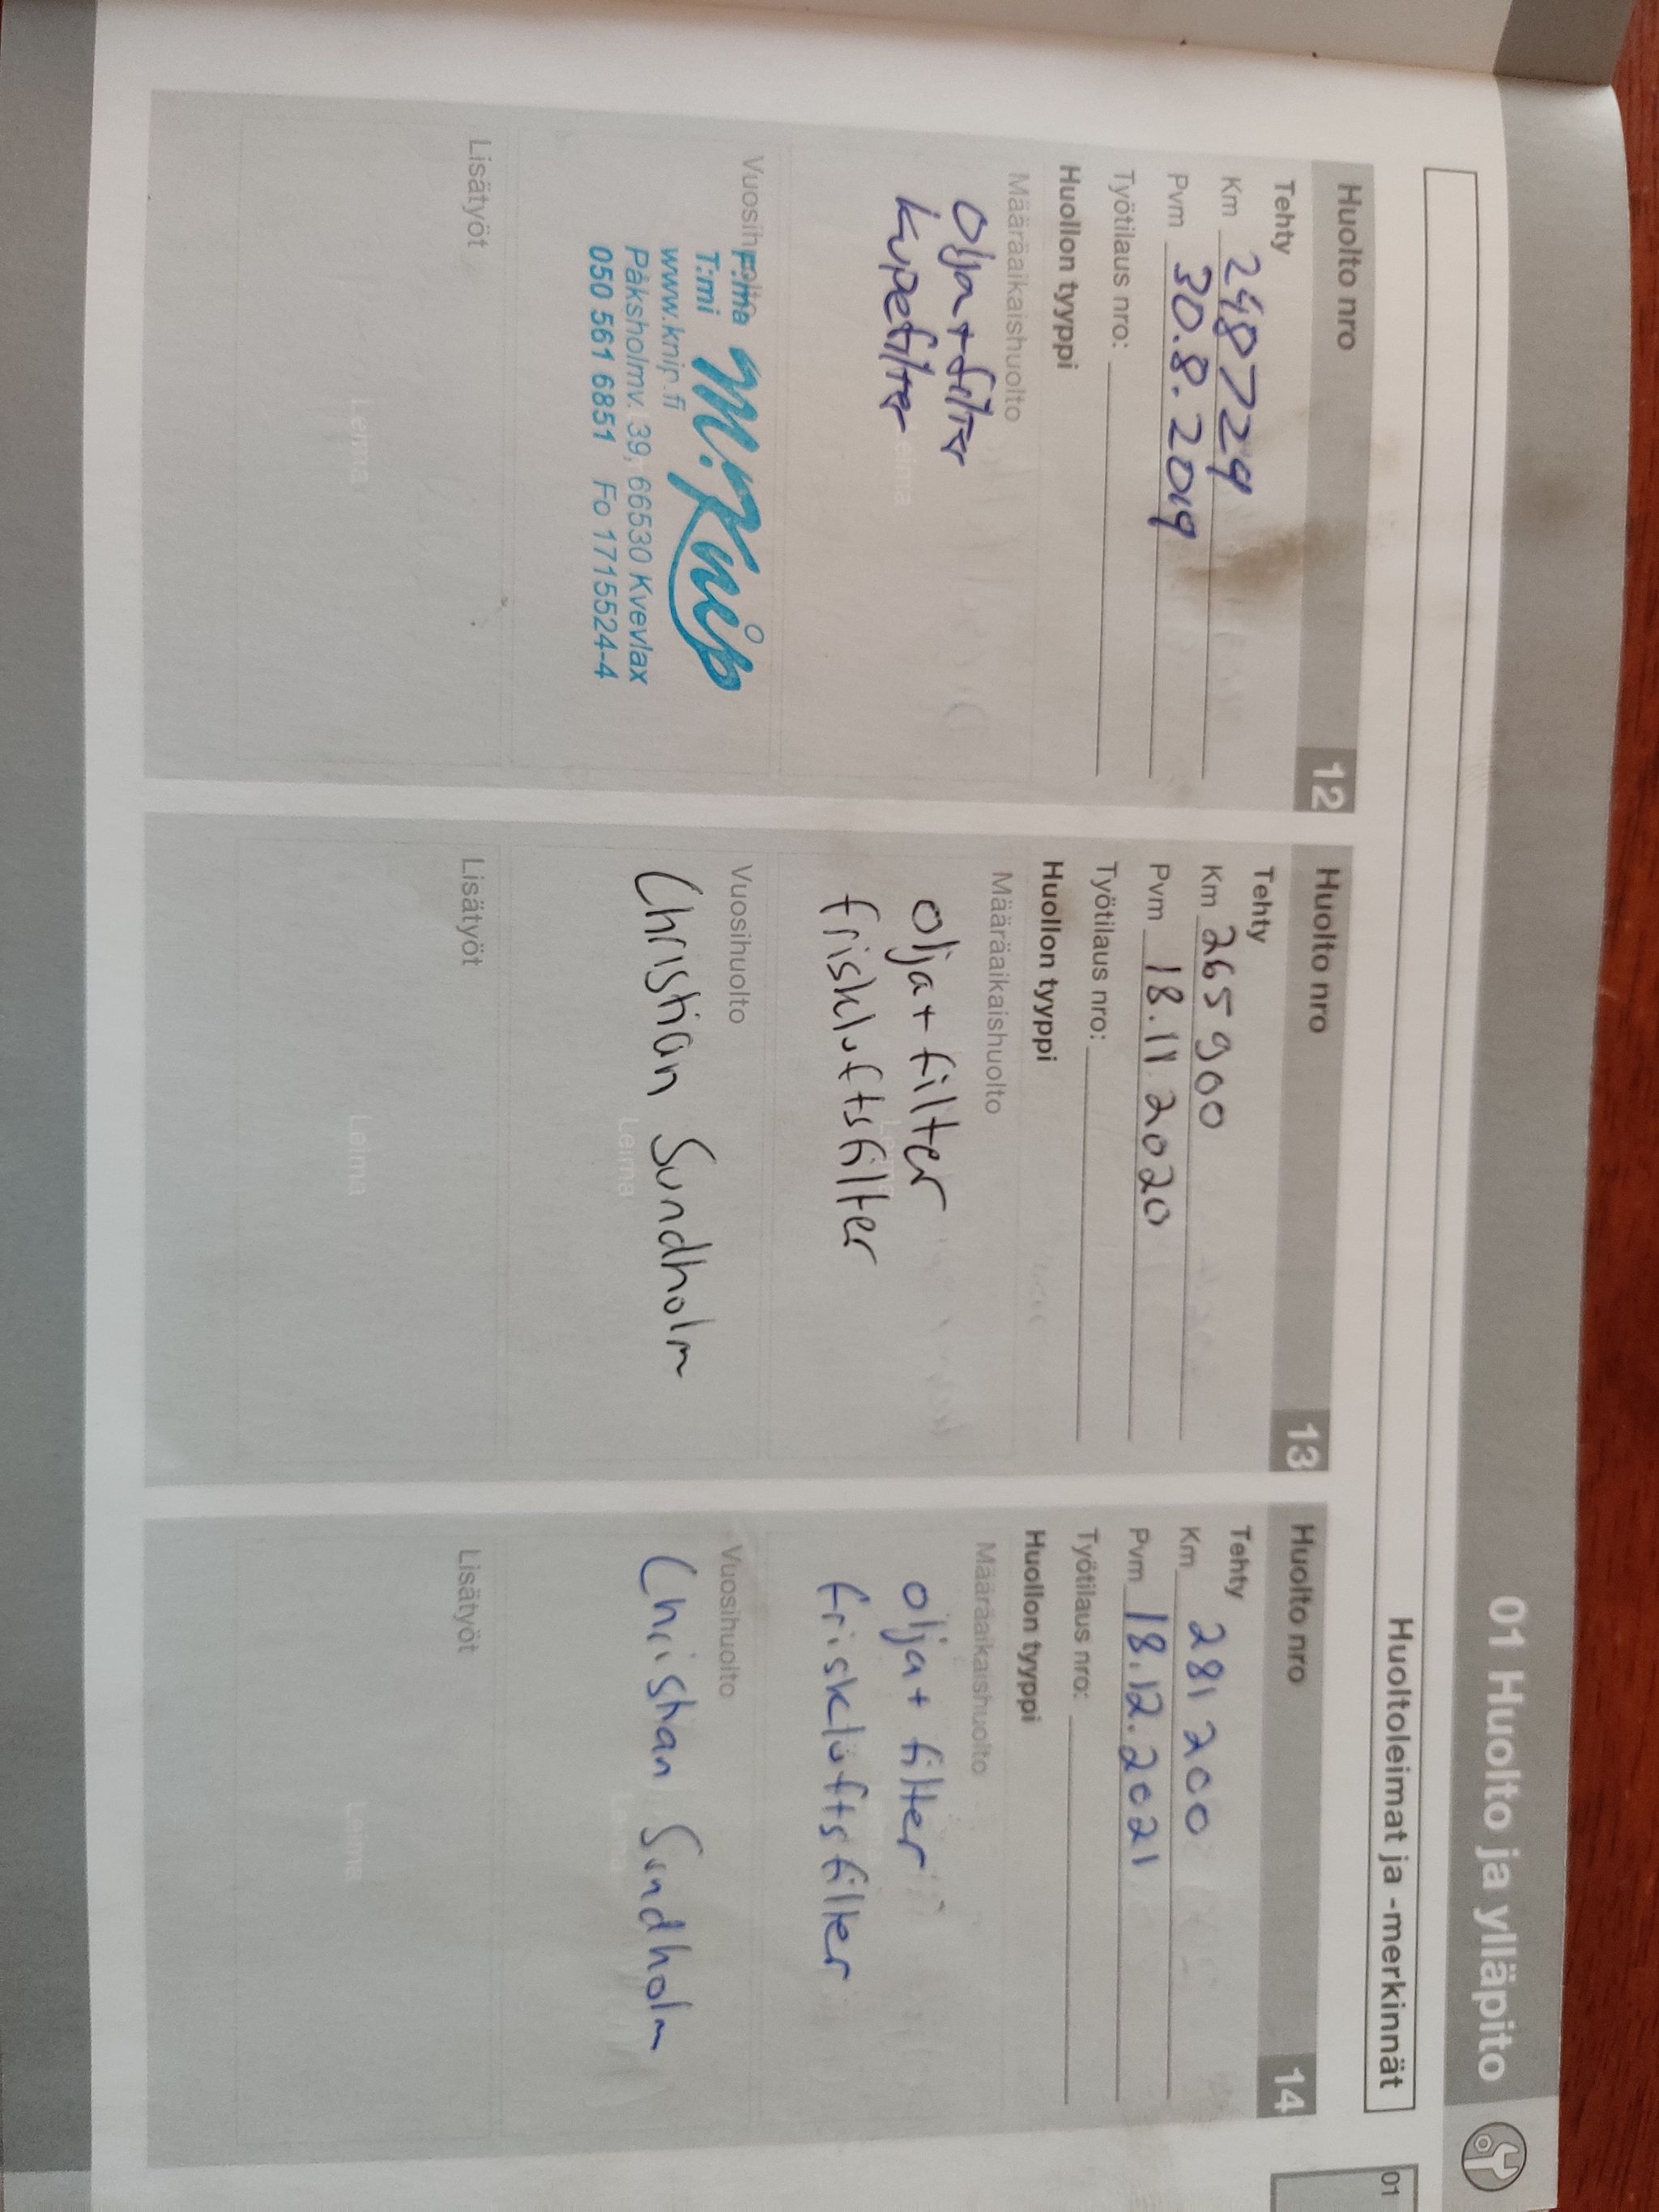 01 Huolto ja ylläpito
Huoltoleimat ja -merkinnät
01
Huolto nro 12
Tehty
Km 248729
Pvm 30.8.2019
Työtilaus nro:
Huollon tyyppi
Määräaikaishuolto
Olja + filter
kupefilter
Leima
Vuosihuolto
F:ma
T:mi M.Knip
www.knip.fi
Påksholmv. 39, 66530 Kvevlax
050 561 6851 Fo 1715524-4
Lisätyöt
Leima
Huolto nro 13
Tehty
Km 265 900
Pvm 18.11.2020
Työtilaus nro:
Huollon tyyppi
Määräaikaishuolto
olja + filter
friskluftsfilter
Leima
Vuosihuolto
Christian Sundholm
Leima
Lisätyöt
Leima
Huolto nro 14
Tehty
Km 281 200
Pvm 18.12.2021
Työtilaus nro:
Huollon tyyppi
Määräaikaishuolto
olja + filter
friskluftsfilter
Vuosihuolto
Christian Sundholm
Leima
Lisätyöt
Leima